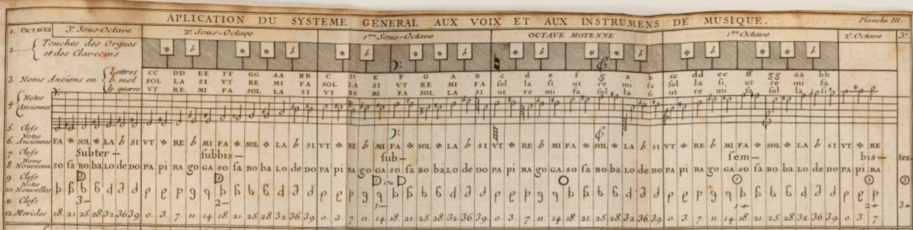 APLICATION DU SYSTEME GENERAL AUX VOIX ET AUX INSTRUMENS DE MUSIQUE.
Planche III.
1. OCTAVES 3e. Sous-Octave 2e. Sous-Octave 1ere. Sous-Octave OCTAVE MOYENNE 1ere. Octave 2e. Octave 3e.
2. Touches des Orgues et des Clavecins
3. Noms Anciens ou Lettres CC DD EE FF GG AA BB C D E F G A B c d e f g a b cc dd ee ff gg aa bb
b. mol SOL LA SI VT RE MI FA SOL LA SI VT RE MI FA sol la si ut re mi fa sol la si ut re mi fa
♮. quarre VT RE MI FA SOL LA SI VT RE MI FA SOL LA SI ut re mi fa sol la si ut re mi fa sol la si
4. Notes Anciennes
5. Clefs
6. Notes Anciennes FA * SOL * LA b SI VT * RE b MI FA * SOL * LA b SI VT * RE b MI FA * SOL * LA b SI VT * RE b MI FA * SOL * LA b SI VT * RE
7. Clefs Subter- subbis- sub- sem- bis- ter
8. Noms Nouveaux so fa BO ba LO de DO PA pi RA go GA so fa BO ba LO de DO PA pi RA go GA so fa BO ba LO de DO PA pi RA go GA so fa BO ba LO de DO PA pi RA
9. Clefs
10. Notes Nouvelles
11. Clefs 3- 2- 1- 1+ 2+ 3+
12. Merides 18. 21. 25. 28. 32. 36. 39 0. 3. 7. 11. 14. 18. 21. 25. 28. 32. 36. 39 0. 3. 7. 11. 14. 18. 21. 25. 28. 32. 36. 39 0. 3. 7. 11. 14. 18. 21. 25. 28. 32. 36. 39 0. 3. 7.